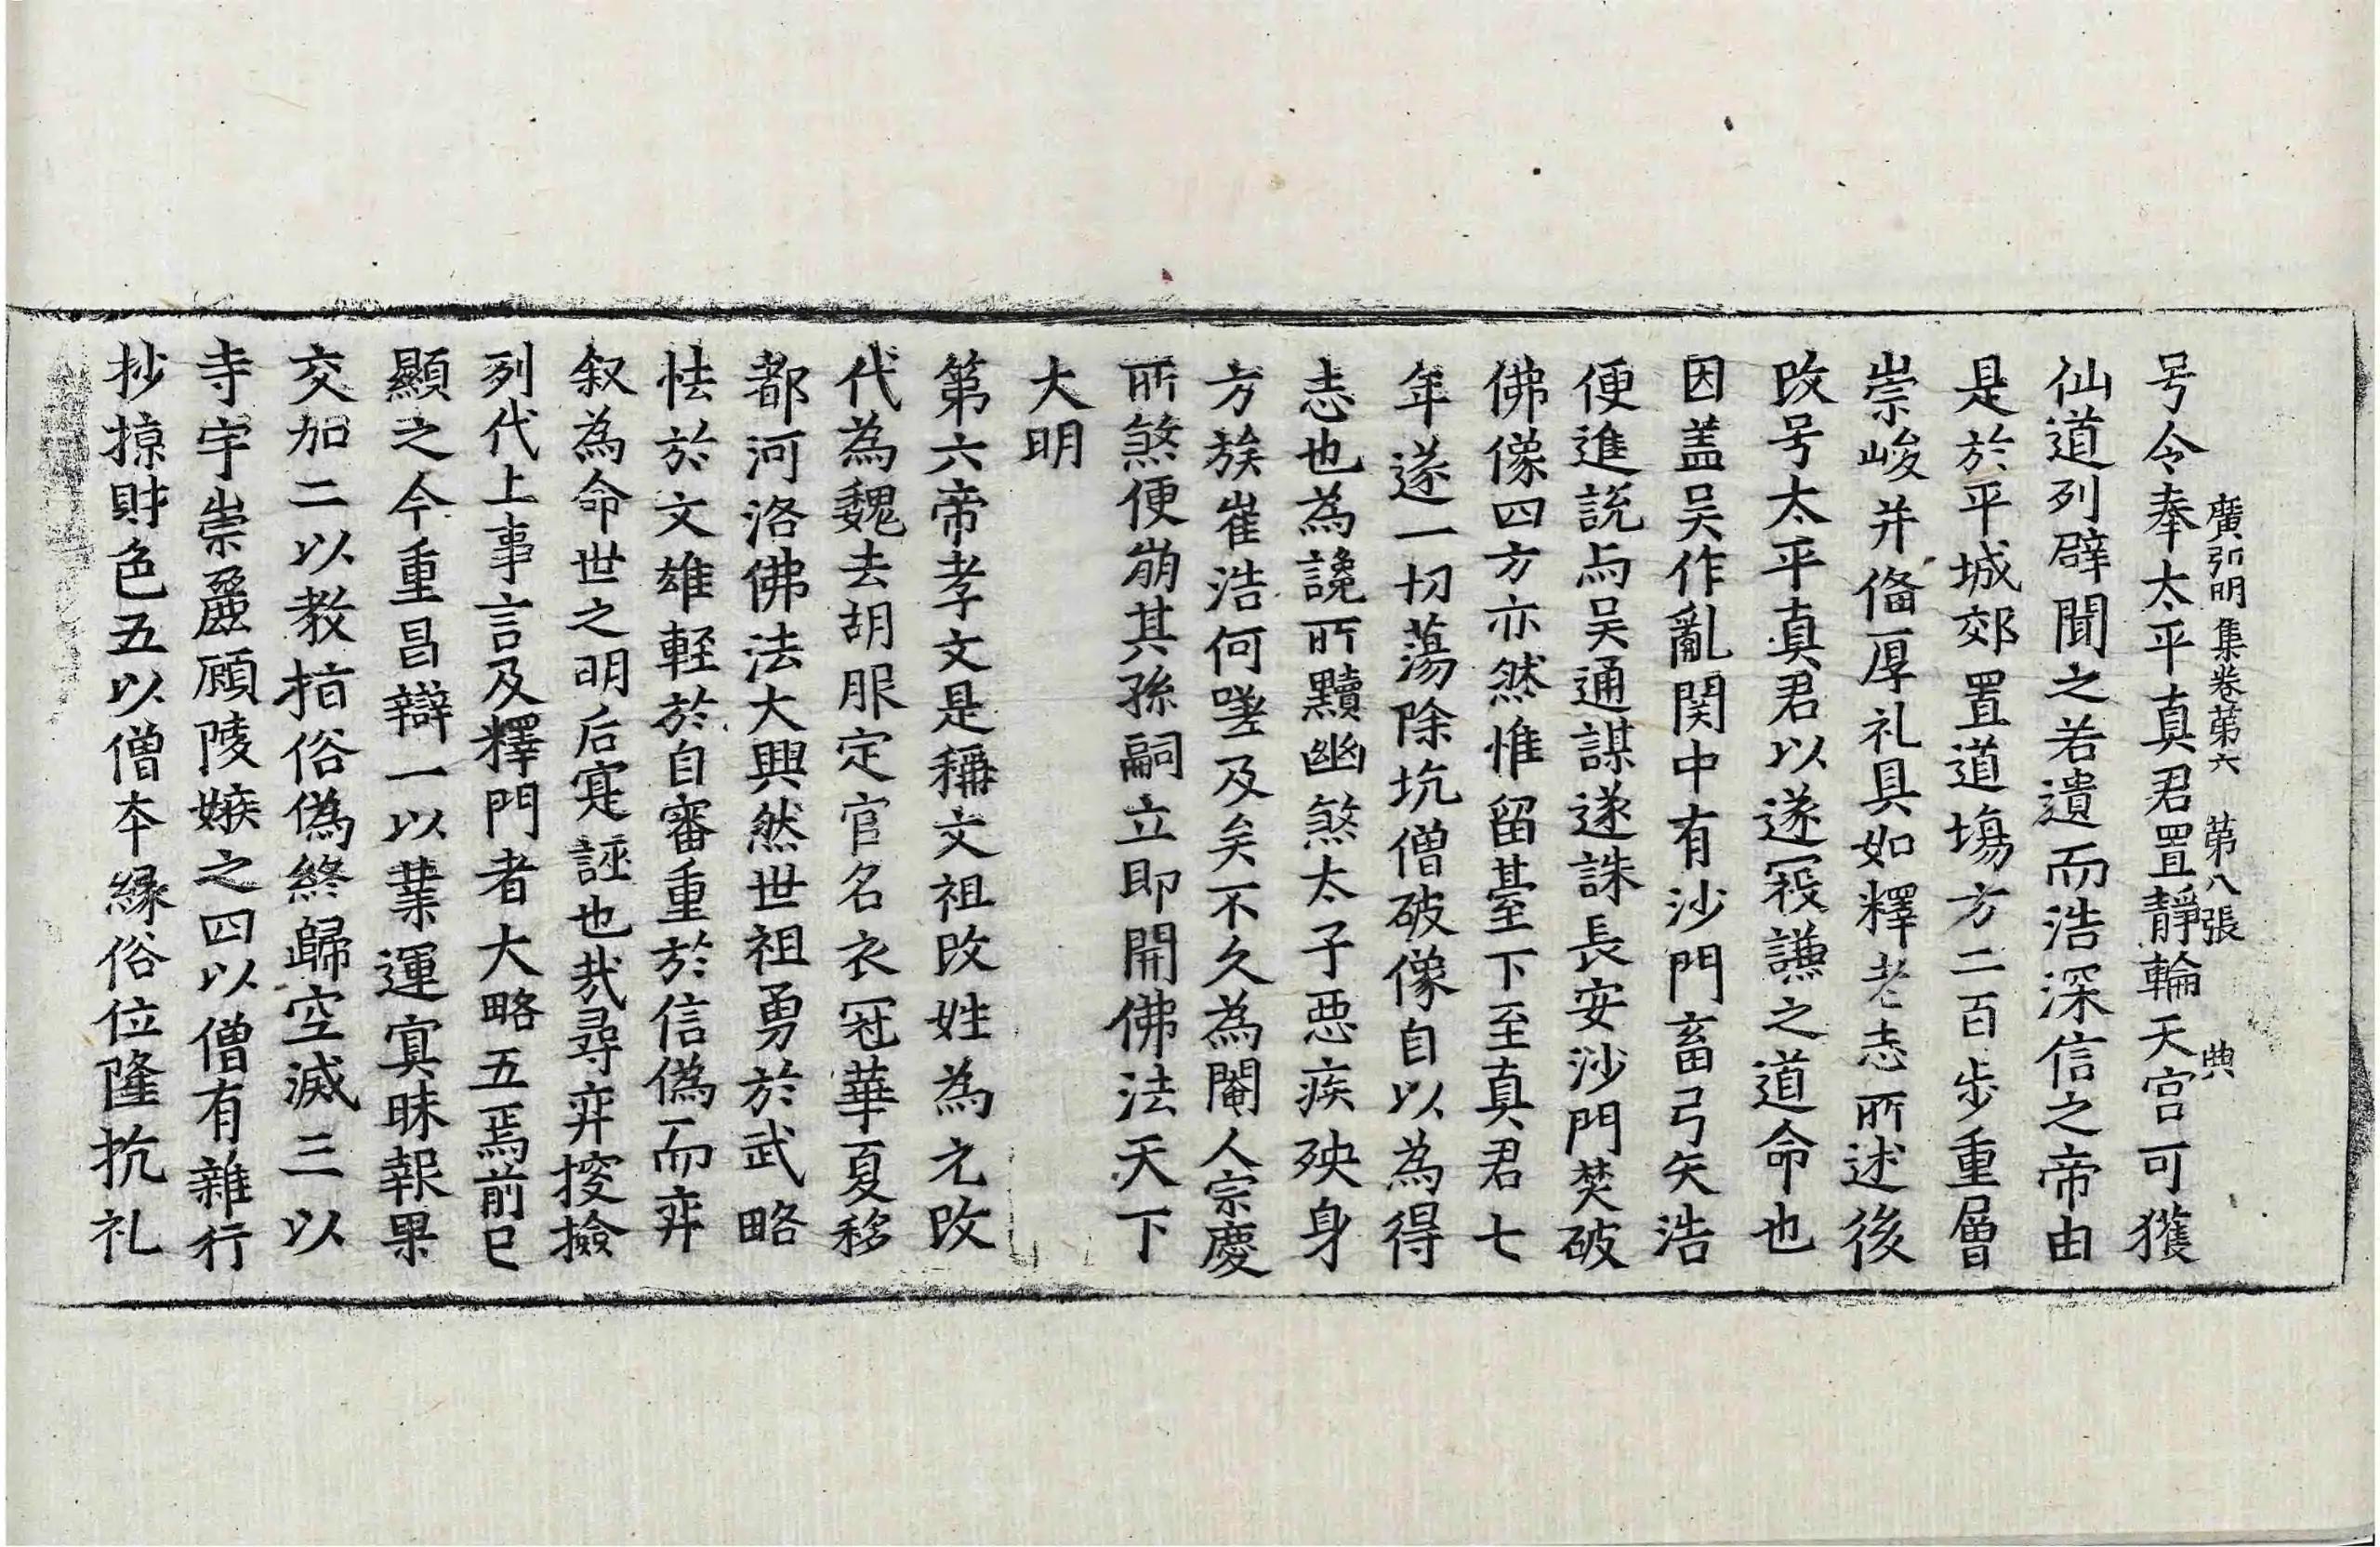 廣弘明集卷第六　第八張　典
号令奉太平真君置靜輪天宮可獲
仙道列辟聞之若遺而浩深信之帝由
是於平城郊置道場方二百步重層
崇峻并俻厚礼具如釋老志所述後
改号太平真君以遂寇謙之道命也
因盖吴作亂関中有沙門畜弓矢浩
便進説与吴通謀遂誅長安沙門焚破
佛像四方亦然惟留臺下至真君七
年遂一切蕩除坑僧破像自以為得
志也為讒所黷幽煞太子惡疾殃身
方族崔浩何嗟及矣不久為閹人宗慶
所煞便崩其孫嗣立即開佛法天下
大明
第六帝孝文是稱文祖改姓為元改
代為魏去胡服定官名衣冠華夏移
都河洛佛法大興然世祖勇於武略
怯於文雄輕於自審重於信偽而弈
叙為命世之明后寔誣也哉尋弈搜撿
列代上事言及釋門者大略五焉前已
顯之今重昌辯一以業運冥昧報果
交加二以教指俗偽終歸空滅三以
寺宇崇麗顧陵嫉之四以僧有雜行
抄掠財色五以僧本緣俗位隆抗礼